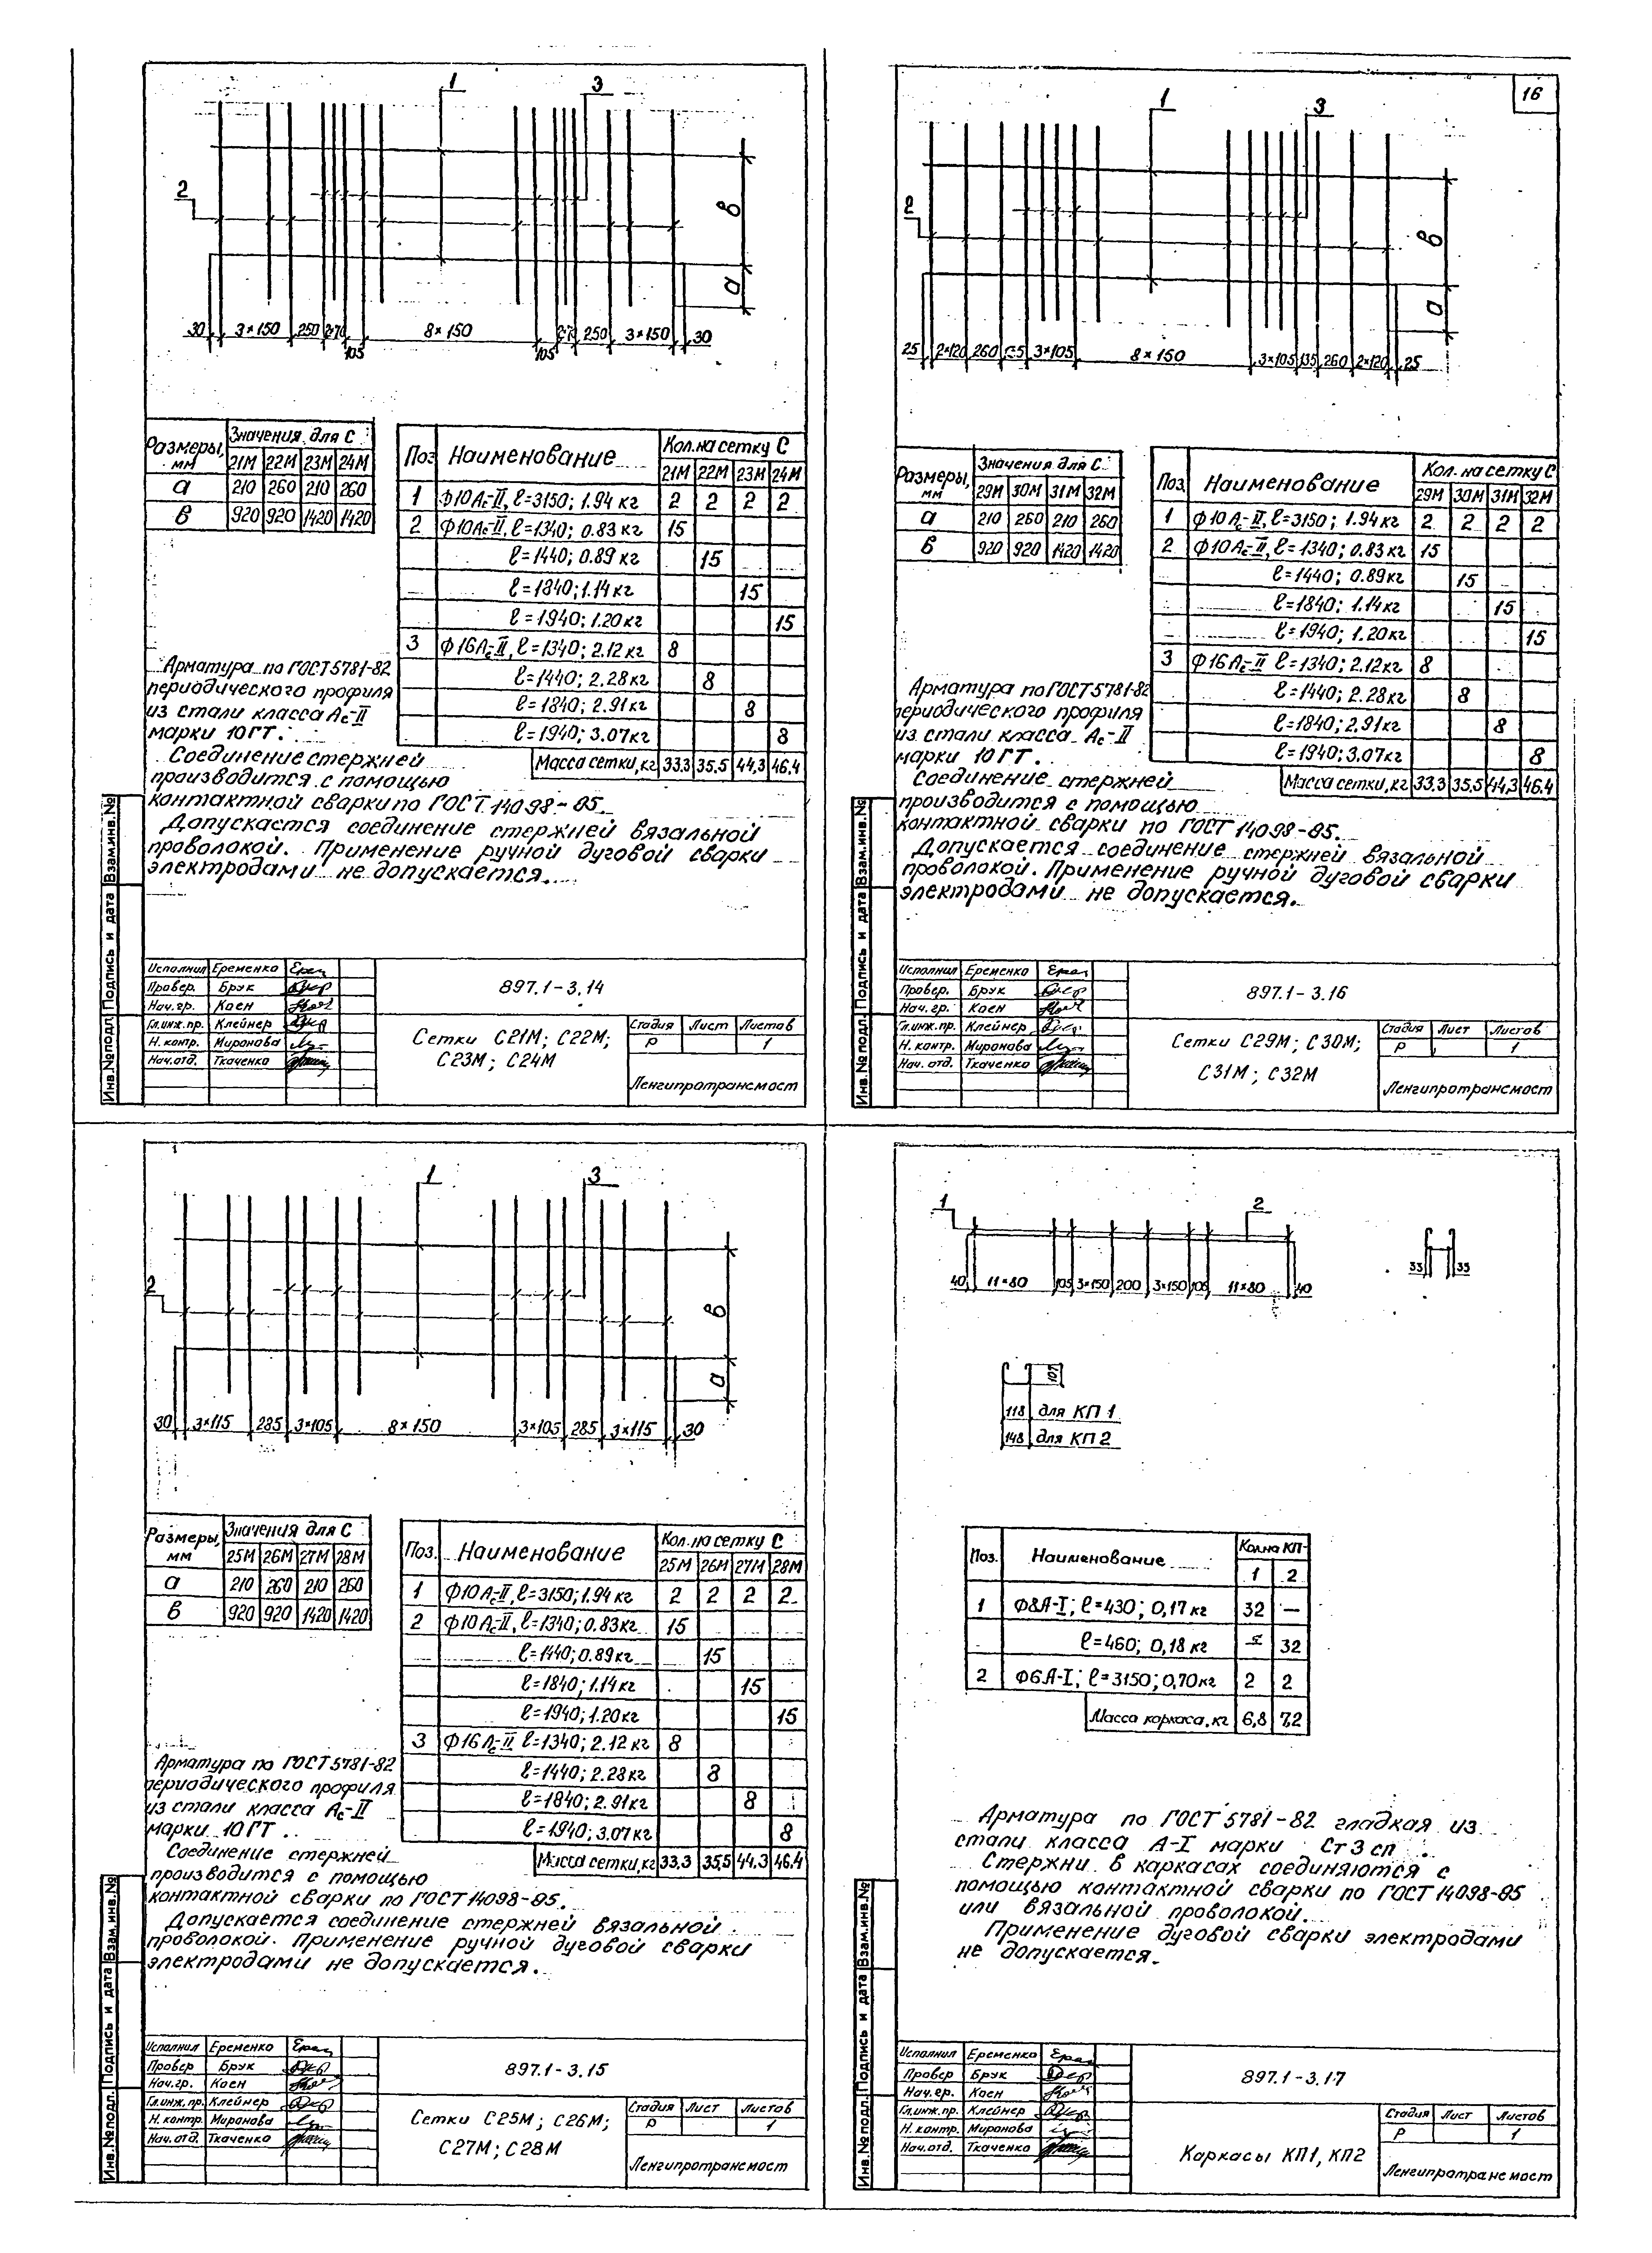 16
1 3
2
в
а
30 3×150 250 2×70 105 8×150 105 2×70 250 3×150 30
Размеры, мм Значения для С
21М 22М 23М 24М
а 210 260 210 260
в 920 920 1420 1420
Поз Наименование Кол. на сетку С
21М 22М 23М 24М
1 Ф10Ас-II, ℓ=3150; 1.94 кг 2 2 2 2
2 Ф10Ас-II, ℓ=1340; 0.83 кг 15
ℓ=1440; 0.89 кг 15
ℓ=1840; 1.14 кг 15
ℓ=1940; 1.20 кг 15
3 Ф16Ас-II, ℓ=1340; 2.12 кг 8
ℓ=1440; 2.28 кг 8
ℓ=1840; 2.91 кг 8
ℓ=1940; 3.07 кг 8
Масса сетки, кг 33.3 35.5 44,3 46.4
Арматура по ГОСТ 5781-82
периодического профиля
из стали класса Ас-II
марки 10ГТ.
Соединение стержней
производится с помощью
контактной сварки по ГОСТ 14098-85.
Допускается соединение стержней вязальной
проволокой. Применение ручной дуговой сварки
электродами не допускается.
Инв.№ подл. Подпись и дата Взам.инв.№
Исполнил Еременко
Провер. Брук
Нач. гр. Каен
Гл.инж.пр. Клейнер
Н. контр. Миронова
Нач.отд. Ткаченко
897.1-3.14
Сетки С21М; С22М;
С23М; С24М
Стадия Лист Листов
Р 1
Ленгипротрансмост
1 3
2
в
а
25 2×120 260 135 3×105 8×150 3×105 135 260 2×120 25
Размеры, мм Значения для С
29М 30М 31М 32М
а 210 260 210 260
в 920 920 1420 1420
Поз. Наименование Кол. на сетку С
29М 30М 31М 32М
1 Ф10Ас-II, ℓ=3150; 1.94 кг 2 2 2 2
2 Ф10Ас-II, ℓ=1340; 0.83 кг 15
ℓ=1440; 0.89 кг 15
ℓ=1840; 1.14 кг 15
ℓ=1940; 1.20 кг 15
3 Ф16Ас-II ℓ=1340; 2.12 кг 8
ℓ=1440; 2.28 кг 8
ℓ=1840; 2.91 кг 8
ℓ=1940; 3.07 кг 8
Масса сетки, кг 33.3 35.5 44,3 46.4
Арматура по ГОСТ 5781-82
периодического профиля
из стали класса Ас-II
марки 10ГТ.
Соединение стержней
производится с помощью
контактной сварки по ГОСТ 14098-85.
Допускается соединение стержней вязальной
проволокой. Применение ручной дуговой сварки
электродами не допускается.
Инв.№ подл. Подпись и дата Взам.инв.№
Исполнил Еременко
Провер. Брук
Нач. гр. Каен
Гл.инж.пр. Клейнер
Н. контр. Миронова
Нач. отд. Ткаченко
897.1-3.16
Сетки С29М; С30М;
С31М; С32М
Стадия Лист Листов
Р 1
Ленгипротрансмост
1 3
2
в
а
30 3×115 285 3×105 8×150 3×105 285 3×115 30
Размеры, мм Значения для С
25М 26М 27М 28М
а 210 260 210 260
в 920 920 1420 1420
Поз. Наименование Кол. на сетку С
25М 26М 27М 28М
1 Ф10Ас-II, ℓ=3150; 1.94 кг 2 2 2 2
2 Ф10Ас-II, ℓ=1340; 0.83 кг 15
ℓ=1440; 0.89 кг 15
ℓ=1840; 1.14 кг 15
ℓ=1940; 1.20 кг 15
3 Ф16Ас-II ℓ=1340; 2.12 кг 8
ℓ=1440; 2.28 кг 8
ℓ=1840; 2.91 кг 8
ℓ=1940; 3.07 кг 8
Масса сетки, кг 33,3 35,5 44.3 46.4
Арматура по ГОСТ 5781-82
периодического профиля
из стали класса Ас-II
марки 10ГТ
Соединение стержней
производится с помощью
контактной сварки по ГОСТ 14098-85.
Допускается соединение стержней вязальной
проволокой. Применение ручной дуговой сварки
электродами не допускается.
Инв.№ подл. Подпись и дата Взам.инв.№
Исполнил Еременко
Провер Брук
Нач.гр. Каен
Гл.инж.пр. Клейнер
Н. контр. Миронова
Нач.отд. Ткаченко
897.1-3.15
Сетки С25М; С26М;
С27М; С28М
Стадия Лист Листов
Р 1
Ленгипротрансмост
1 2
40 11×80 105 3×150 200 3×150 105 11×80 40
33 33
107
118 для КП 1
148 для КП 2
Поз. Наименование Кол.на КП-
1 2
1 Ф8А-I; ℓ=430; 0,17 кг 32 —
ℓ=460; 0,18 кг — 32
2 Ф6А-I; ℓ=3150; 0,70 кг 2 2
Масса каркаса, кг 6,8 7,2
Арматура по ГОСТ 5781-82 гладкая из
стали класса А-I марки Ст 3 сп
Стержни в каркасах соединяются с
помощью контактной сварки по ГОСТ 14098-85
или вязальной проволокой.
Применение дуговой сварки электродами
не допускается.
Инв.№ подл. Подпись и дата Взам.инв.№
Исполнил Еременко
Провер Брук
Нач.гр. Каен
Гл.инж.пр. Клейнер
Н. контр. Миронова
Нач.отд. Ткаченко
897.1-3.17
Каркасы КП1, КП2
Стадия Лист Листов
Р 1
Ленгипротрансмост